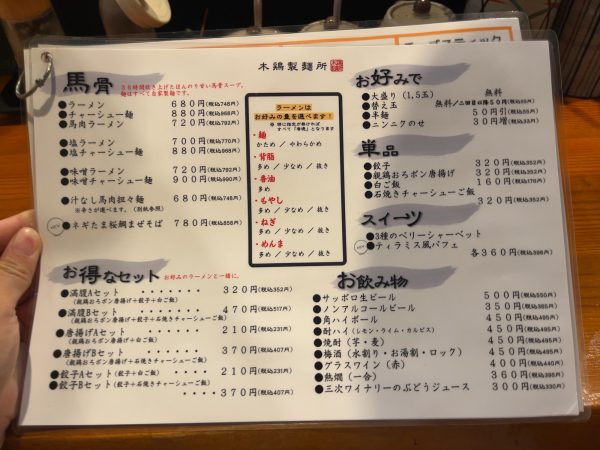 木鶏製麺所
馬骨
36時間炊き上げたほんのり甘い馬骨スープ。
麺はすべて自家製麺です。
●ラーメン 680円(税込748円)
●チャーシュー麺 880円(税込968円)
●馬肉ラーメン 720円(税込792円)
●塩ラーメン 700円(税込770円)
●塩チャーシュー麺 880円(税込968円)
●味噌ラーメン 720円(税込792円)
●味噌チャーシュー麺 900円(税込990円)
●汁なし馬肉担々麺 680円(税込748円)
※辛さが選べます。(別紙参照)
●ネギたま桜鯛まぜそば 780円(税込858円)
ラーメンは
お好みの量を選べます!
※ 特に指定が無ければ
すべて「普通」となります
・麺
かため / やわらかめ
・背脂
多め / 少なめ / 抜き
・香油
多め
・もやし
多め / 少なめ / 抜き
・ねぎ
多め / 少なめ / 抜き
・めんま
多め / 少なめ / 抜き
お好みで
●大盛り(1,5玉) 無料
●替え玉 無料/二回目以降50円(税込55円)
●半麺 50円引(税込55円)
●ニンニクのせ 30円増(税込33円)
単品
●餃子 320円(税込352円)
●親鶏おろポン唐揚げ 320円(税込352円)
●白ご飯 160円(税込176円)
●石焼きチャーシューご飯 320円(税込352円)
スイーツ
●3種のベリーシャーベット
●ティラミス風パフェ
各360円(税込396円)
お得なセット お好みのラーメンと一緒に。
●満腹Aセット ・・・・・・・ 320円(税込352円)
(親鶏おろポン唐揚げ+餃子+白ご飯)
●満腹Bセット ・・・・・・・ 470円(税込517円)
(親鶏おろポン唐揚げ+餃子+石焼きチャーシューご飯)
●唐揚げAセット ・・・・・・ 210円(税込231円)
(親鶏おろポン唐揚げ+白ご飯)
●唐揚げBセット ・・・・・・ 370円(税込407円)
(親鶏おろポン唐揚げ+石焼きチャーシューご飯)
●餃子Aセット(餃子+白ご飯) ・・・・ 210円(税込231円)
●餃子Bセット(餃子+石焼きチャーシューご飯) ・・・・ 370円(税込407円)
お飲み物
●サッポロ生ビール 500円(税込550円)
●ノンアルコールビール 350円(税込385円)
●角ハイボール 450円(税込495円)
●酎ハイ(レモン・ライム・カルピス) 450円(税込495円)
●焼酎(芋・麦) 450円(税込495円)
●梅酒(水割り・お湯割・ロック) 450円(税込495円)
●グラスワイン(赤) 400円(税込440円)
●熱燗(一合) 360円(税込396円)
●三次ワイナリーのぶどうジュース 300円(税込330円)